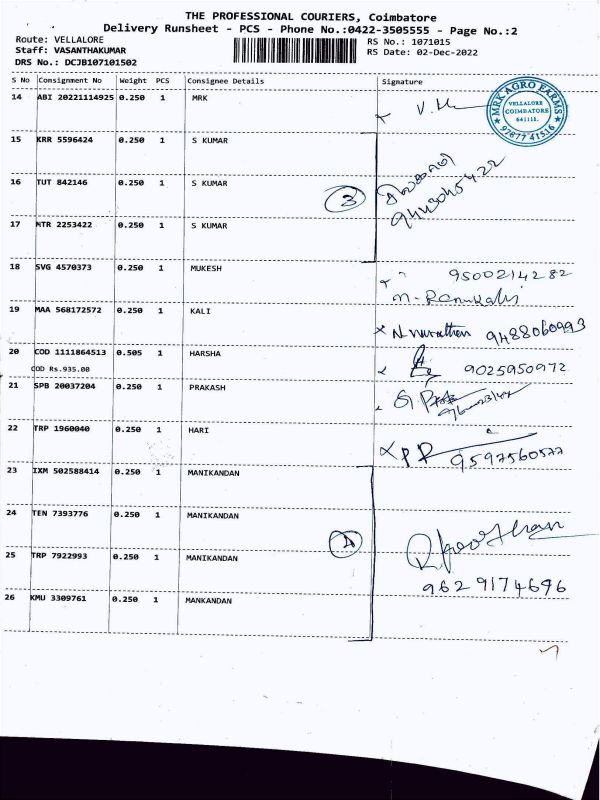 THE PROFESSIONAL COURIERS, Coimbatore
Delivery Runsheet - PCS - Phone No.:0422-3505555 - Page No.:2
Route: VELLALORE
RS No.: 1071015
Staff: VASANTHAKUMAR
RS Date: 02-Dec-2022
DRS No.: DCJB107101502
S No Consignment No Weight PCS Consignee Details Signature
14 ABI 20221114925 0.250 1 MRK
MRK AGRO FARMS
VELLALORE
COIMBATORE
641111.
97877 41516
15 KRR 5596424 0.250 1 S KUMAR
16 TUT 842146 0.250 1 S KUMAR
3
9443045422
17 MTR 2253422 0.250 1 S KUMAR
18 SVG 4570373 0.250 1 MUKESH 9500214282
19 MAA 568172572 0.250 1 KALI 9488060993
20 COD 1111864513 0.505 1 HARSHA 9025950972
COD Rs.935.00
21 SPB 20037204 0.250 1 PRAKASH
22 TRP 1960040 0.250 1 HARI PR 9597560577
23 IXM 502588414 0.250 1 MANIKANDAN
24 TEN 7393776 0.250 1 MANIKANDAN
25 TRP 7922993 0.250 1 MANIKANDAN
9629174696
26 KMU 3309761 0.250 1 MANKANDAN